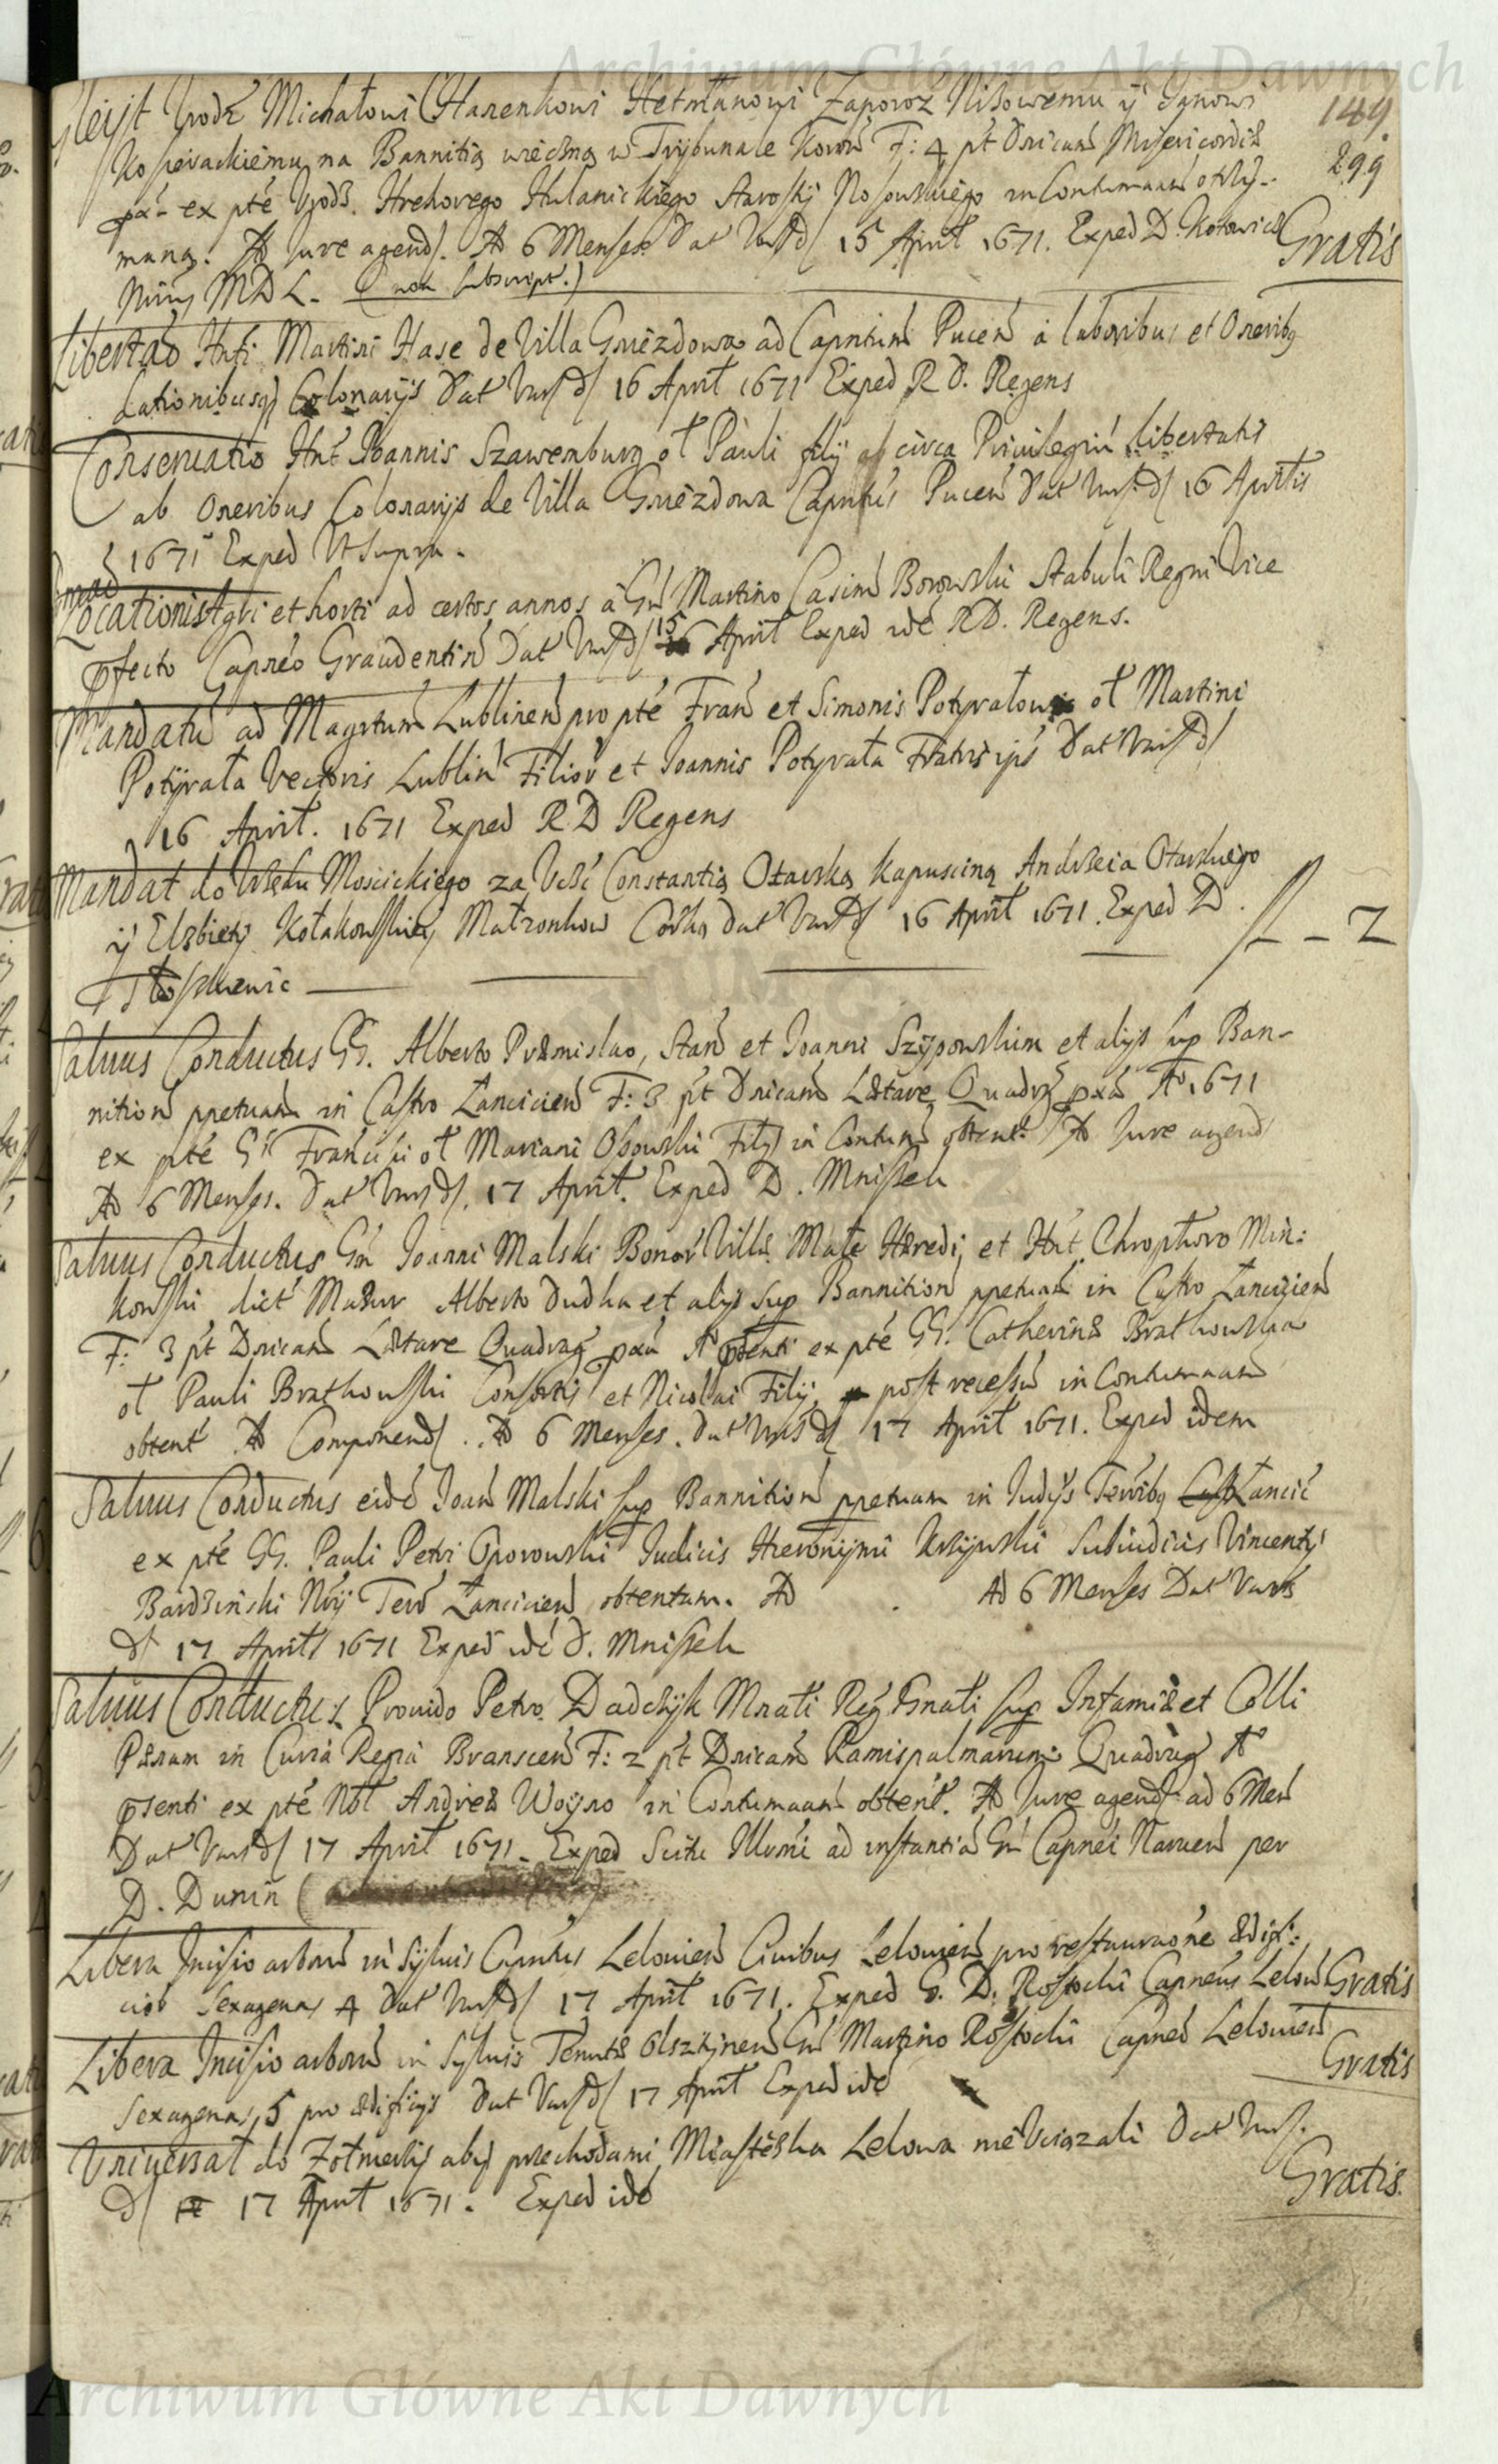 Archiwum Główne Akt Dawnych
149.
299
Gleijt Urodz Michałowi Hanenkowi Hetmanowi Zaporoz Nizowemu ij Synowi
na Bannitią wieczną w Trijbunale Koron F: 4 pt Dnicam Misericordiæ
ex pte Urodz. Hrehorego Hulanickiego Starosty Nosowskiego in Contumaciam otrzij-
maną. Ad Jure agend. Ad 6 Menses Dat Vars d 15 April 1671. Exped D. Kotowicz Gratis
MDL. (non subscript.)
Libertas Hnti Martini Hase de Villa Gniezdowa ad Capntum Pucen a laboribus et Oneribq
dationibusq Colonarijs Dat Vars d 16 April 1671 Exped R D. Regens
Conservatio Hnt Joannis Szawenburg ol Pauli filij circa Privilegiu libertatis
ab Oneribus Colonarijs de Villa Gniezdowa Capntus Pucen Dat Vars d 16 Aprilis
1671 Exped Ut Supra.
Locationis Agri et horti ad certos annos a Gn Martino Casim Borowski Stabuli Regni Vice
pfecto Capneo Graudentin Dat Vars d 15 April Exped ide RD. Regens.
Mandatu ad Magrtum Lublinen pro pte Fran et Simonis ol Martini
Potyrała Vectoris Lublin Filior et Joannis Potyrała Fratris ips Dat Vars d
16 April. 1671 Exped R D Regens
Mandat do Urzędu Moscickiego za Constantią Kapusciną Andrzeia
ij Elzbiety Kołakowskiey Małzonkow Corką Dat Vars d 16 April 1671. Exped D. - 2
Salvus Conductus GG. Alberto Przmislao, Stan et Joanni Szijpowskim et alijs sup Ban-
nition ppetuam in Castro Lancicien F: 3 pt Dnicam Lætare Quadrag pxa Ao 1671
ex pte Gn Francisci ol Mariani Osowski Filij in Contum obtent. Ad Jure agend
Ad 6 Menses. Dat Vars d. 17 April. Exped D. Mnissek
Salvus Conductus Gn Joanni Malski Bonor Villæ Małe Hæredi, et Hnt Chrophoro Min:
kowski dict Mazur Alberto Dudka et alijs sup Bannition ppetuam in Castro Lancizien
F: 3 pt Dnicam Lætare Quadrag pxa Ao pdenti ex pte GG. Catherinæ Bratkowska
ol Pauli Bratkowski Consortis et Nicolai Filij, post recessu in Contumaciam
obtent Ad Componend. Ad 6 Menses. Dat Vars d 17 April 1671. Exped idem
Salvus Conductus eide Joan Malski sup Bannition ppetuam in Judijs Terribq Lancic
ex pte GG. Pauli Petri Oporowski Judicis Hieronijmi Subiudicis Vincenty
Bardzinski Nrij Terr Lancicien obtentam. Ad . Ad 6 Menses Dat Vars
d 17 April 1671 Exped ide D. Mnissek
Salvus Conductus Provido Petro Dadczijk sup Infamiæ et Colli
Pænam in Curia Regia Branscen F: 2 pt Dnicam Ramispalmarum Quadrag Ao
psenti ex pte Nbl Andreæ Woijno in Contumaciam obtent. Ad Jure agend ad 6 Men
Dat Vars d 17 April 1671. Exped Scitu Illvsmi ad instantia Gn Capnei per
D. Dunin
Libera Incisio arbora in Sijlvis Capntus Lelovien Civibus Lelovien pro restaurone ædifi:
cior Sexagenas 4 Dat Vars d 17 April 1671. Exped G. D. Rostocki Capneus Lelow Gratis
Libera Incisio arbora in Sylvis Tenutæ Olsztijnen Gn Martino Rostocki Capneo Lelovien
Sexagenas, 5 pro ædificijs Dat Vars d 17 April Exped ide Gratis
Universał do Zołnierzij abij przechodami Miasteczka Lelowa nie Uciązali Dat Vars.
d 17 April 1671. Exped ide Gratis.
Archiwum Główne Akt Dawnych